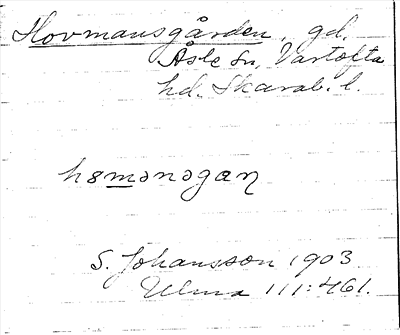 Hovmansgården, gd.
Åsle sn, Vartofta
hd. Skarab. l.
hɞmɘnɘgaɳ
S. Johansson 1903
Ulma 111:461.